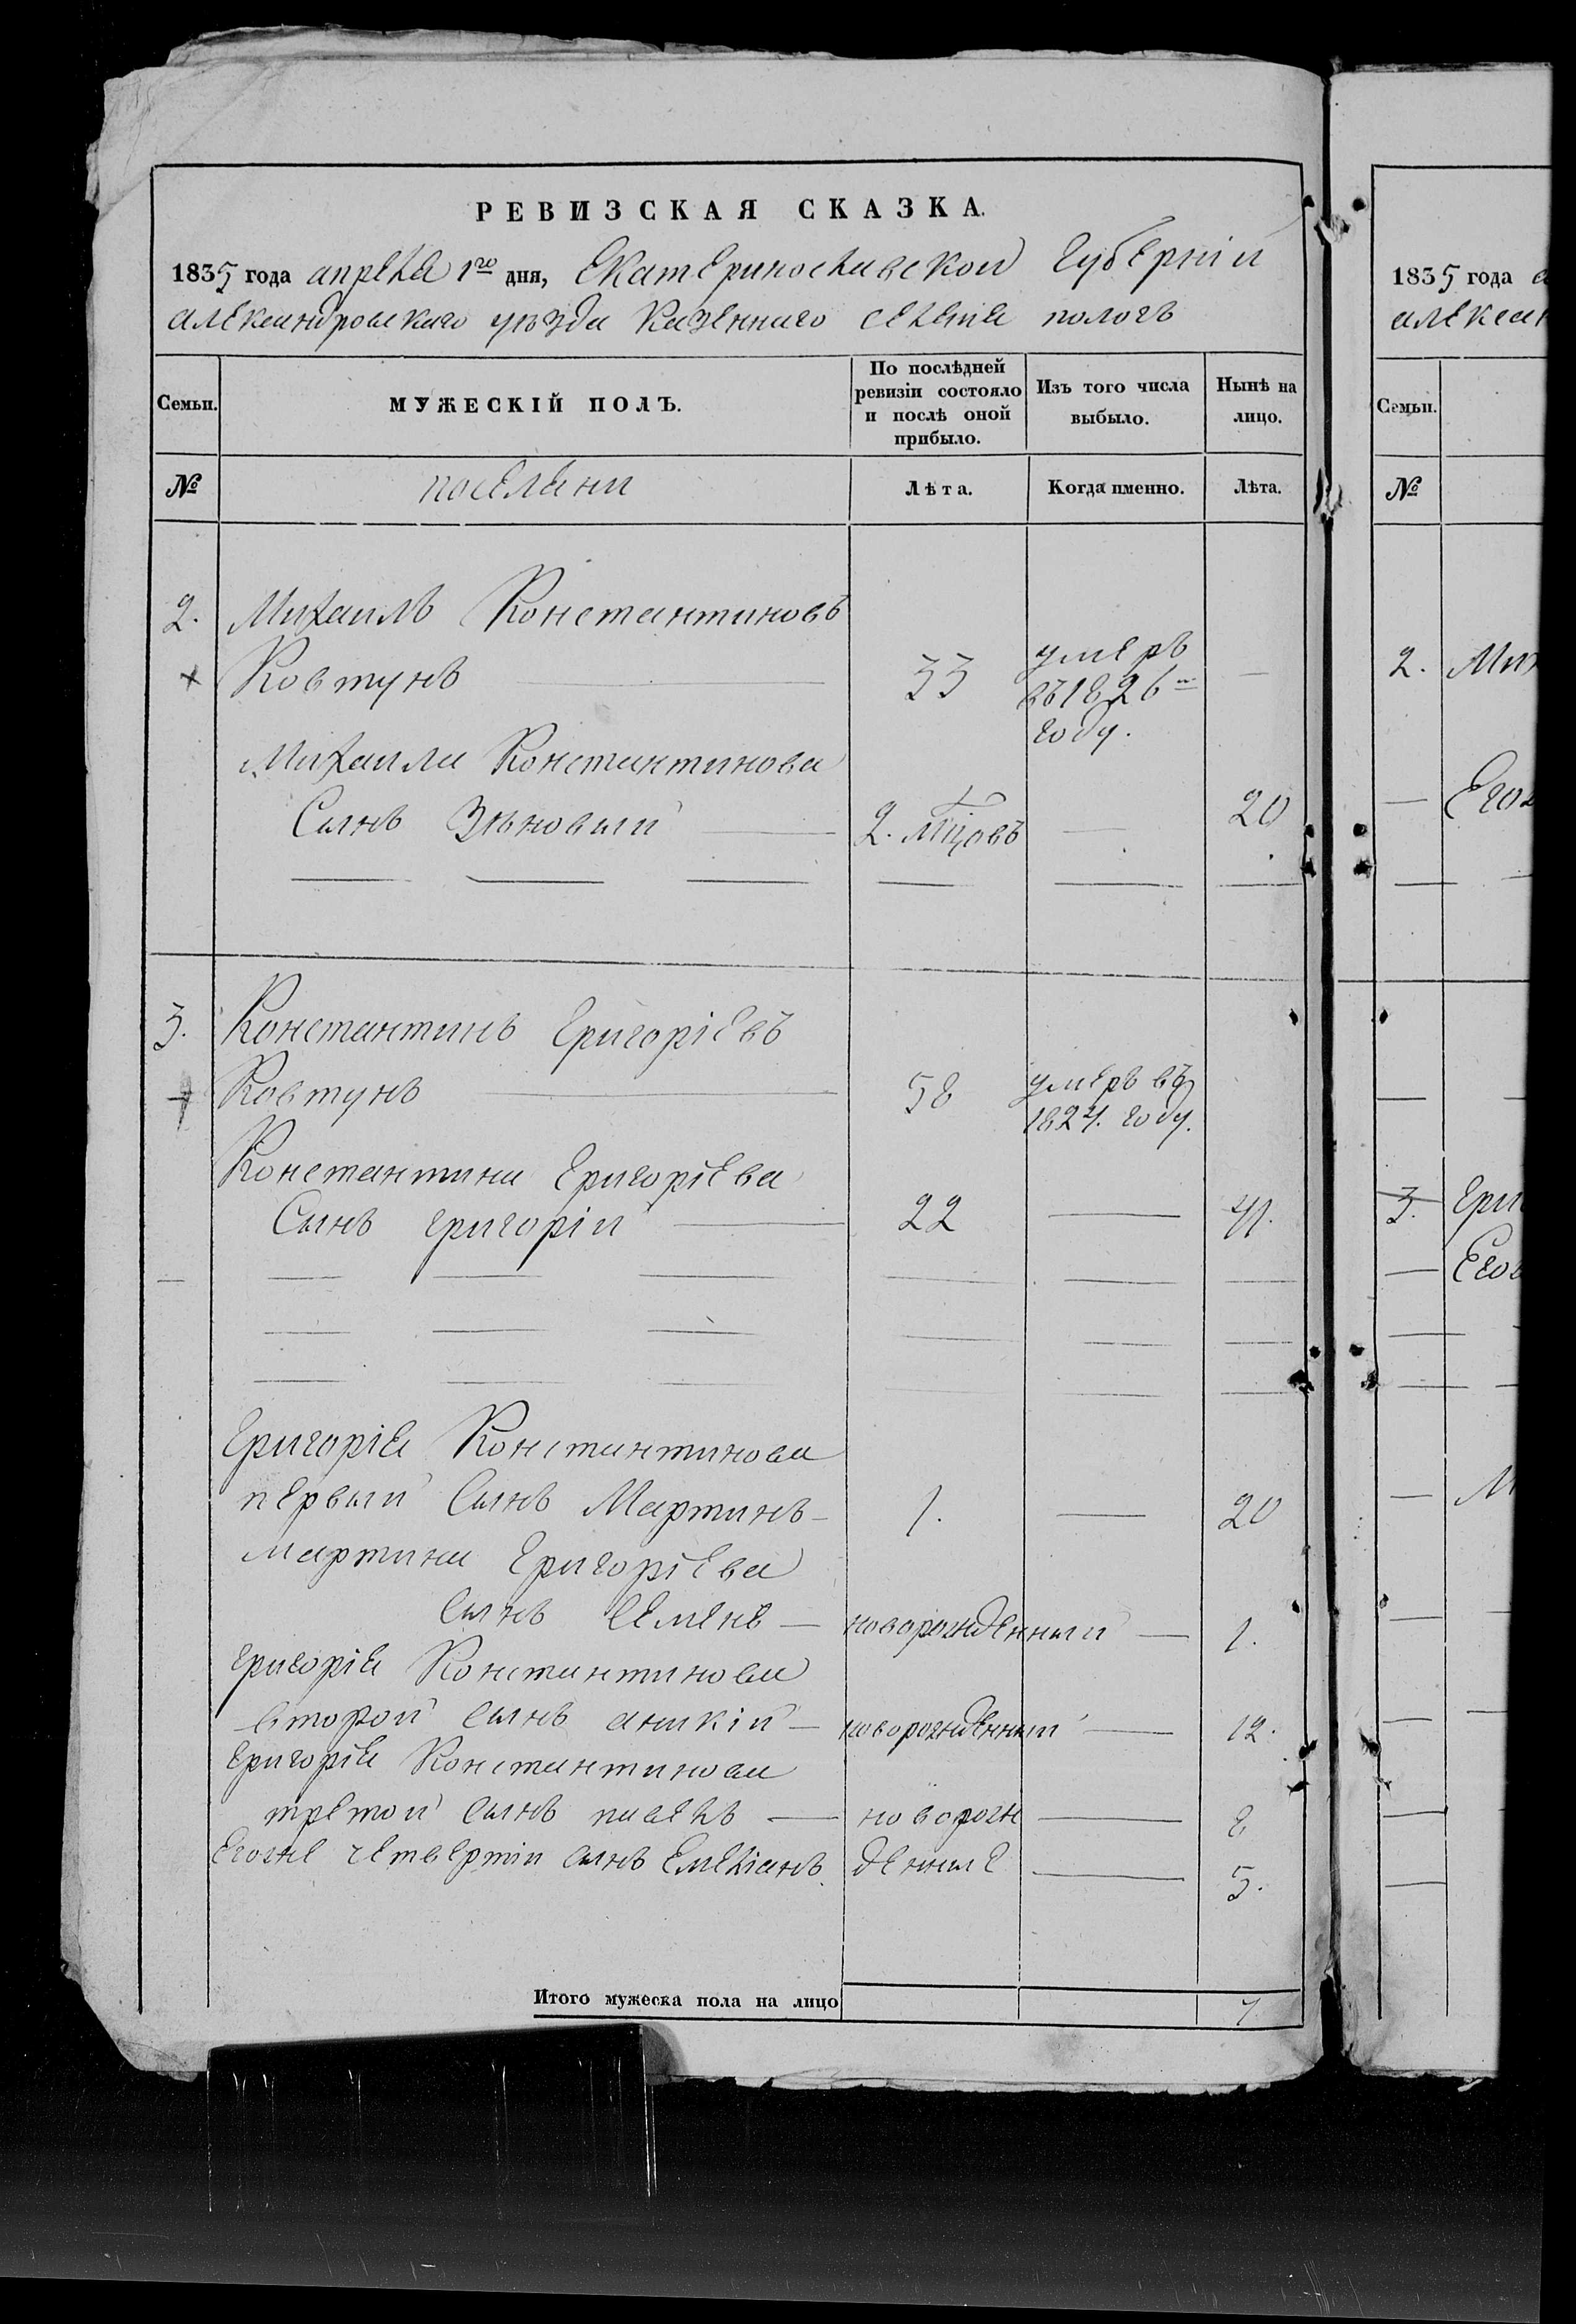 РЕВИЗСКАЯ СКАЗКА.
1835 года апреля 1го дня, Екатеринославской Губерніи
александровскаго уѣзда казеннаго селенія пологъ
Семьи.
МУЖЕСКІЙ ПОЛЪ.
По послѣдней
ревизіи состояло
и послѣ оной
прибыло.
Изъ того числа
выбыло.
Нынѣ на
лицо.
№
поселяни
Лѣта.
Когда именно.
Лѣта.
2. Михаилъ Константиновъ
Ковтунъ — 33 умеръ —
въ 1826м
году.
Михаила Константинова
Сынъ Зѣновый — 2. мцовъ — 20
3. Константинъ Григоріевъ
Ковтунъ — 58 умеръ въ
1824. году.
Константина Григоріева
Сынъ григоріи — 22 — 41.
Григорія Константинова
первый Сынъ Мартинъ — 1. — 20
мартина Григоріева
Сынъ Семенъ — новорожденный — 1.
григорія Константинова
второй Сынъ аникій — новорожденный — 12.
Григорія Константинова
третой Сынъ павелъ — новорож — 8
Егожъ четвертіи Сынъ Емеліанъ. денные — 5.
Итого мужеска пола на лицо 7
1835 года а
алексан
Семьи.
№
2. Мих
— Его
3. Гри
— Его
— М